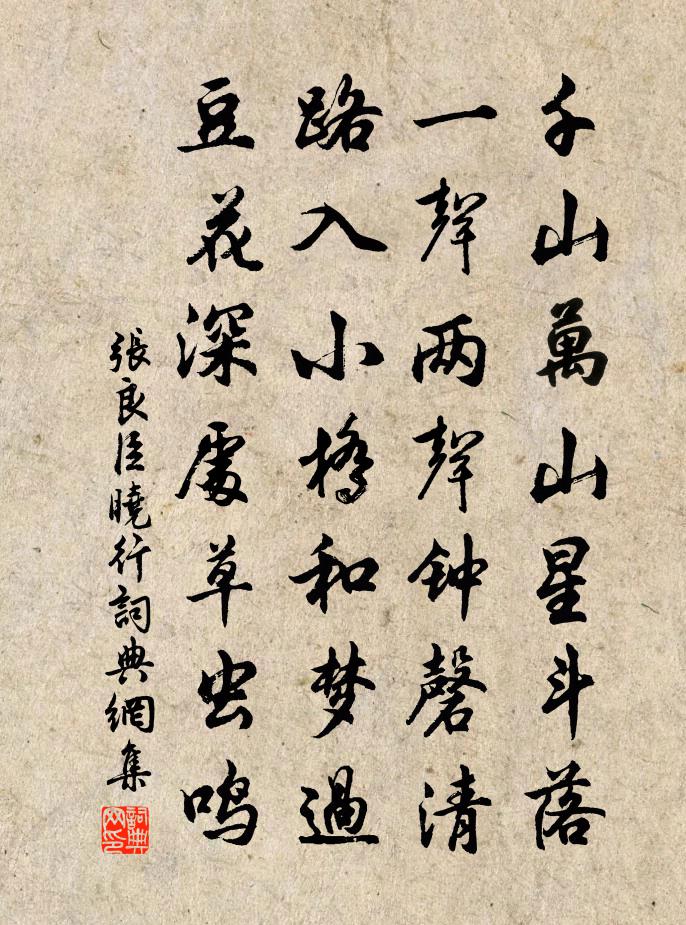 千山萬山星斗落
一聲两聲钟磬清
路入小橋和梦過
豆花深處草虫鸣
張良臣曉行詞典網集
詞典
网印